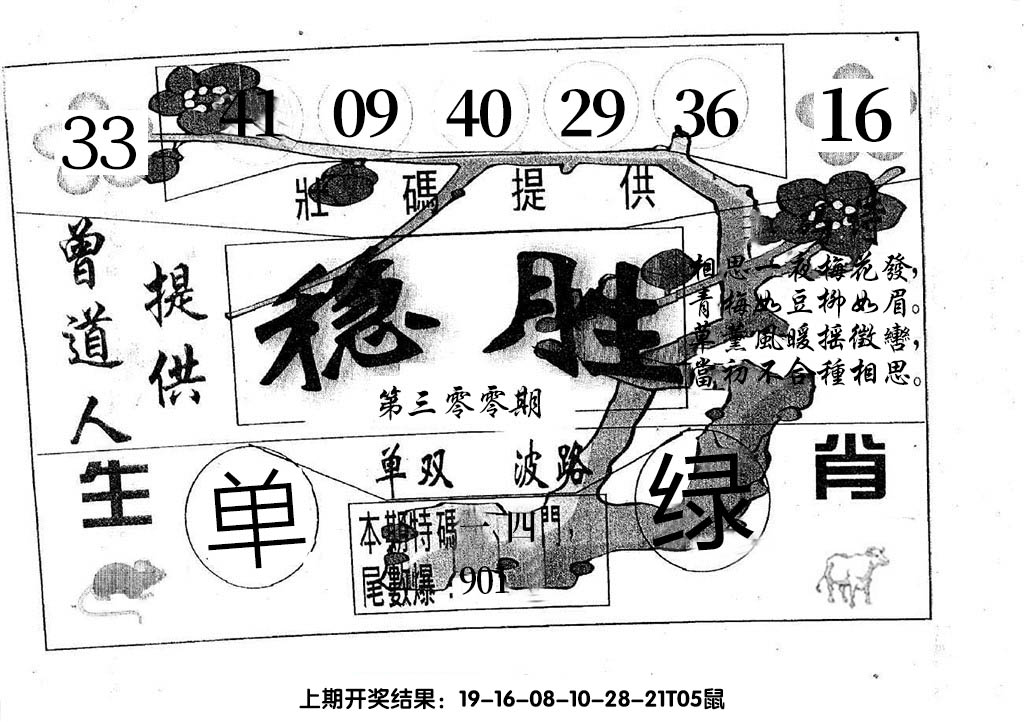 33 41 09 40 29 36 16
壯碼提供
曾道人
提供
穩胜
第三零零期
相思一夜梅花發，
青梅如豆柳如眉。
草薰風暖搖徵轡，
當初不合種相思。
单双 波路
生 肖
单
绿
本期特碼一、四門，
尾數爆：901
上期开奖结果：19-16-08-10-28-21T05鼠